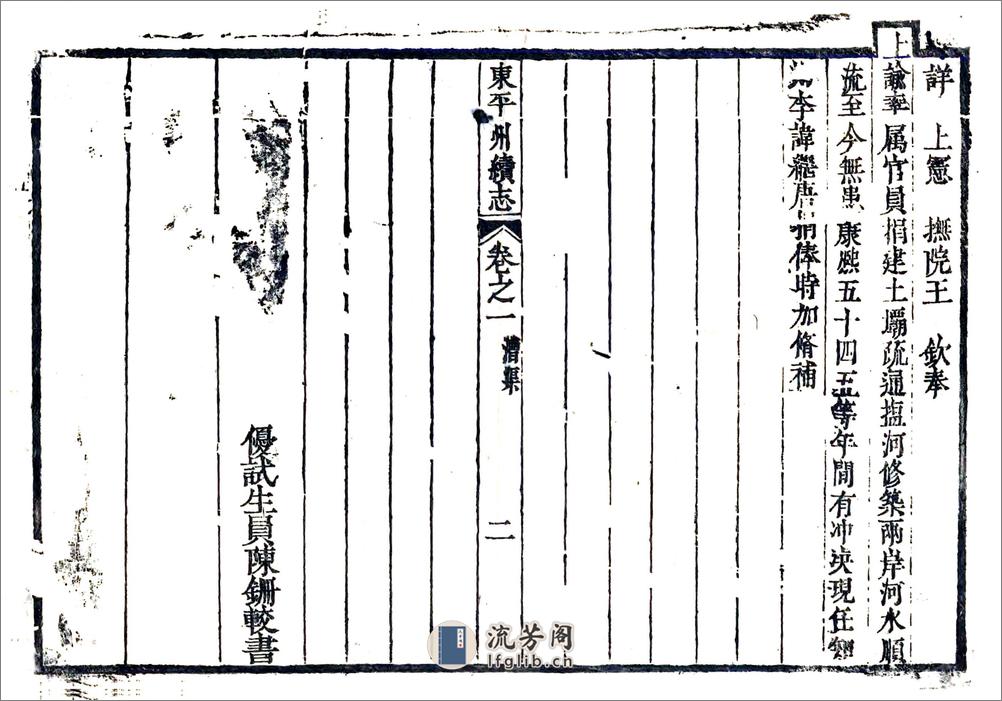 詳　上憲　撫院王　欽奉
上諭率屬官員捐建土壩疏通塩河修築兩岸河水順
流至今無患康熙五十四五等年間有冲決現任
州李諱繼唐捐俸時加脩補
東平州續志　卷之一　漕渠　二
優試生員陳鉶較書
流芳阁
lfglib.ch